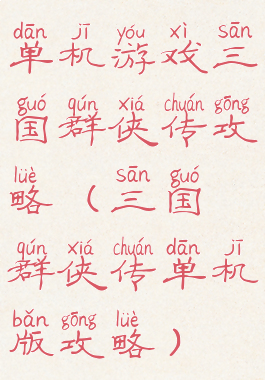 dān jī yóu xì sān
单机游戏三
guó qún xiá chuán gōng
国群侠传攻
lüè sān guó
略（三国
qún xiá chuán dān jī
群侠传单机
bǎn gōng lüè
版攻略）